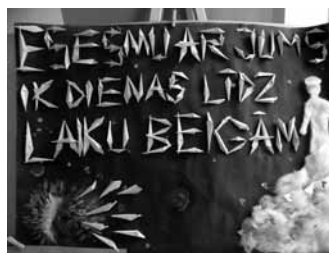 ES ESMU AR JUMS
IK DIENAS LĪDZ
LAIKU BEIGĀM